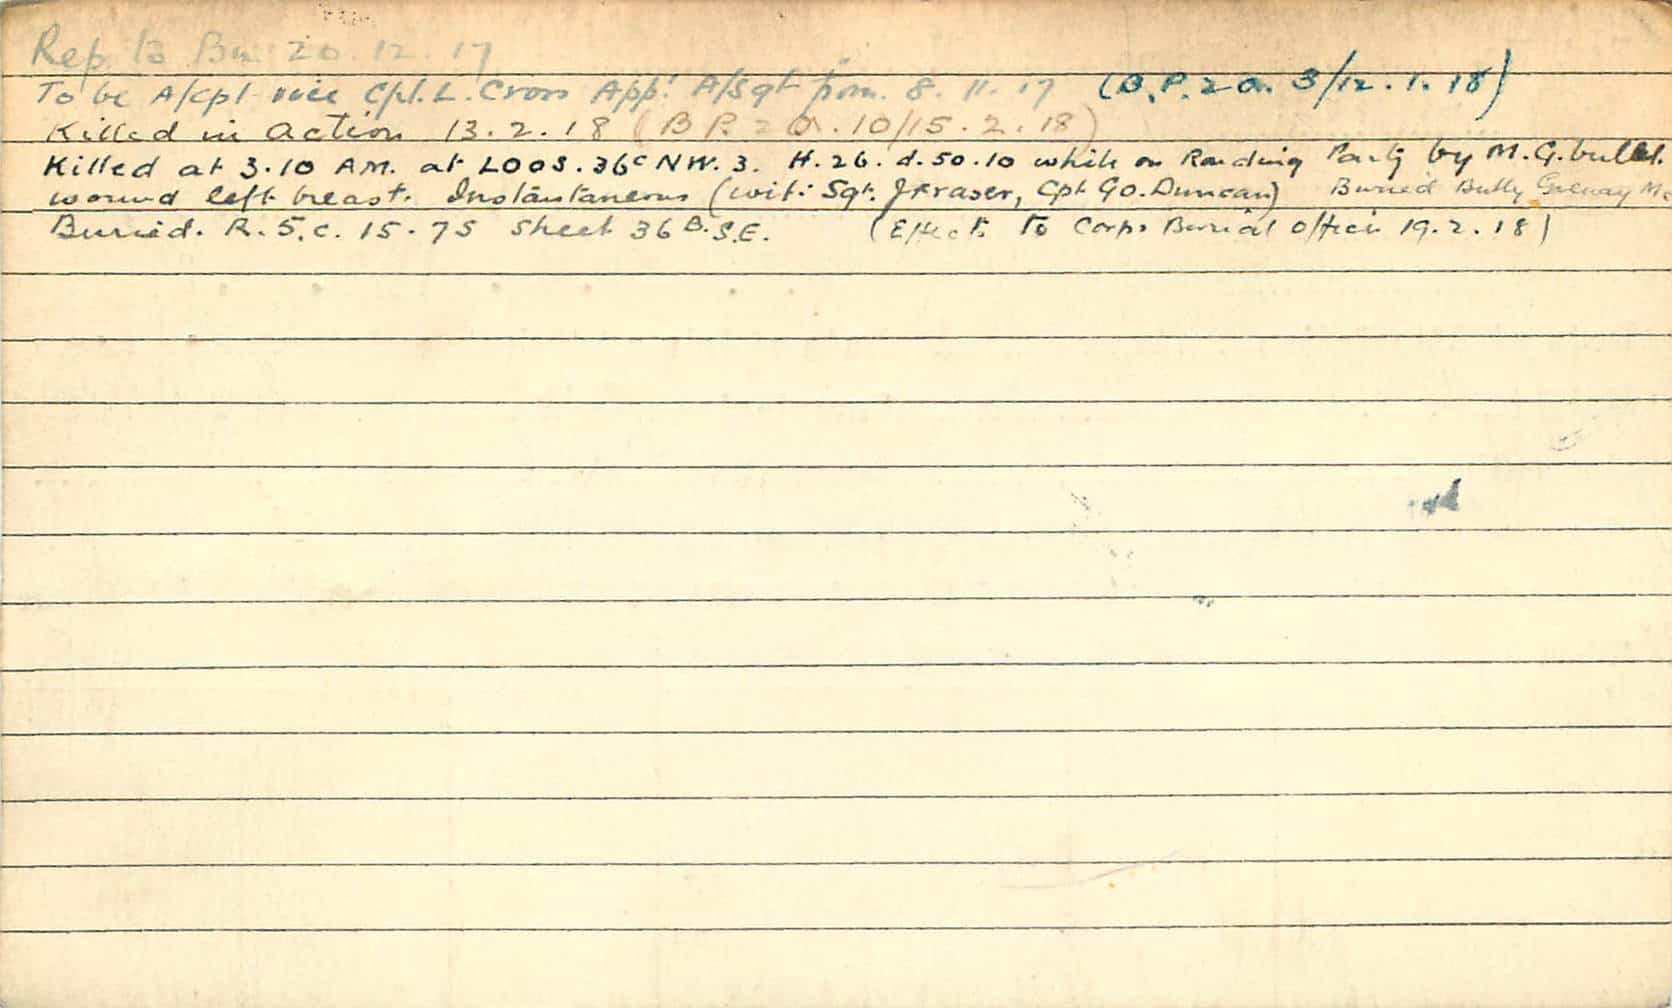 Rep. to Bn. 20.12.17
To be A/Cpl vice Cpl. L. Cross App! A/Sgt from. 8.11.17 (B.P. 2 O. 3/12.1.18)
Killed in Action 13.2.18 (B P. 2 O. 10/15.2.18)
Killed at 3.10 AM. at LOOS. 36c NW. 3. H. 26. d. 50.10 while on Raiding Party by M.G. bullet.
wound left breast. Instantaneous (wit: Sgt. J Fraser, Cpl G.O. Duncan) Buried Bully Grenay
Buried. R. 5. c. 15.75 Sheet 36 B. S.E. (Effects to Corps Burial Officer 19.2.18)